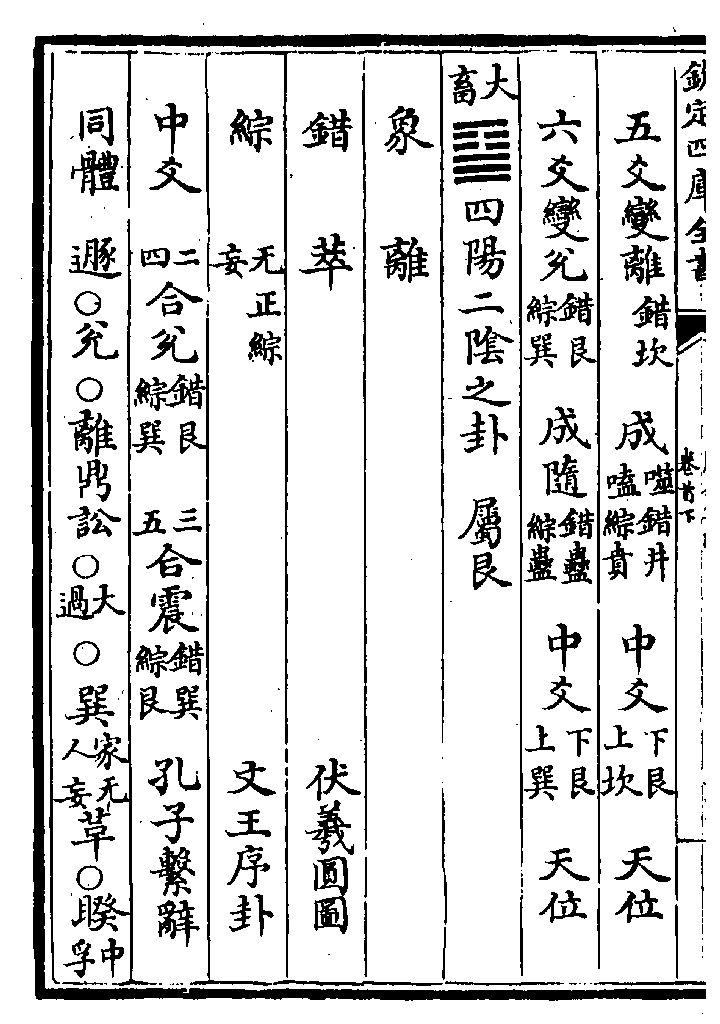 欽定四庫全書 卷首下
五爻變離錯坎 成噬嗑錯井綜賁 中爻下艮上坎 天位
六爻變兊錯艮綜巽 成隨錯蠱綜蠱 中爻下艮上巽 天位
大畜䷙四陽二陰之卦 屬艮
象 離
錯 萃 伏羲圓圖
綜 无妄正綜 文王序卦
中爻 二四合兊錯艮綜巽 三五合震錯巽綜艮 孔子繫辭
同體 遯○兊○離鼎訟○大過○巽家人无妄革○睽中孚